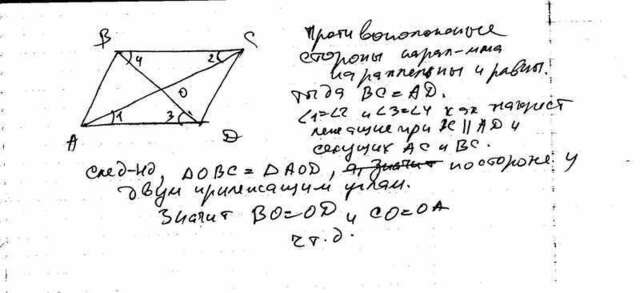 B
C
4
2
O
1
3
A
D
Противоположные
стороны парал-мма
параллельны и равны.
тогда BC=AD.
∠1=∠2 и ∠3=∠4 как накрест
лежащие при BC || AD и
секущих AC и BC.
след-но, ΔOBC = ΔAOD, а, значит по стороне и
двум прилежащим углам.
Значит BO=OD и CO=OA
ч.т.д.